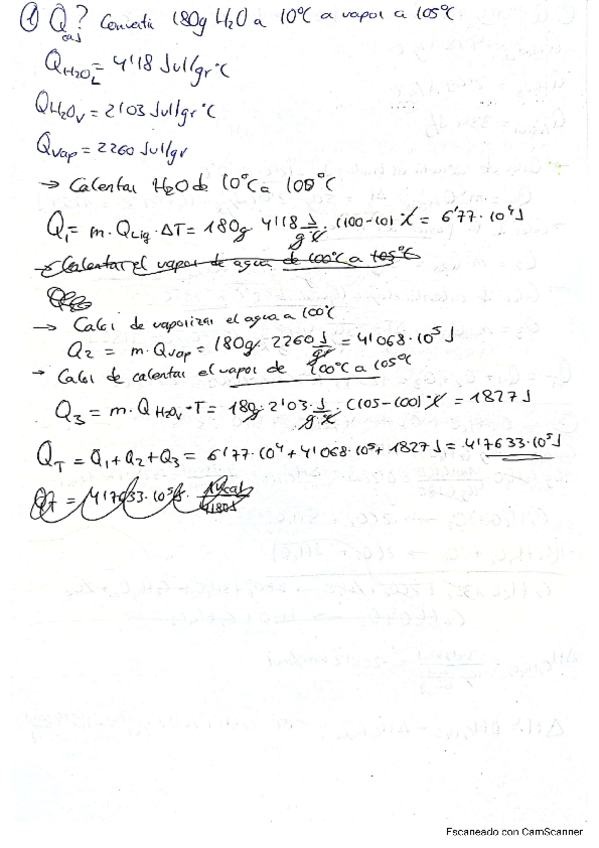 ① Q? Convertir 180g H2O a 10ºC a vapor a 105ºC
QH2OL = 4'18 Jul/gr ºC
QH2OV = 2'03 Jul/gr ºC
Qvap = 2260 Jul/gr
→ Calentar H2O de 10ºC a 100ºC
Q1 = m · QLiq · ΔT = 180g · 4'18 J/g·ºC · (100-10) ºC = 6'77 · 10⁴ J
→ Calentar el vapor de agua de 100ºC a 105ºC
→ Calor de vaporizar el agua a 100ºC
Q2 = m · Qvap = 180g · 2260 J/gr = 4'068 · 10⁵ J
→ Calor de calentar el vapor de 100ºC a 105ºC
Q3 = m · QH2OV · T = 180g · 2'03 · J/g·ºC · (105-100) ºC = 1827 J
QT = Q1 + Q2 + Q3 = 6'77 · 10⁴ + 4'068 · 10⁵ + 1827 J = 4'7633 · 10⁵ J
QT = 4'7633 · 10⁵ J · 1 Kcal/4180J
Escaneado con CamScanner